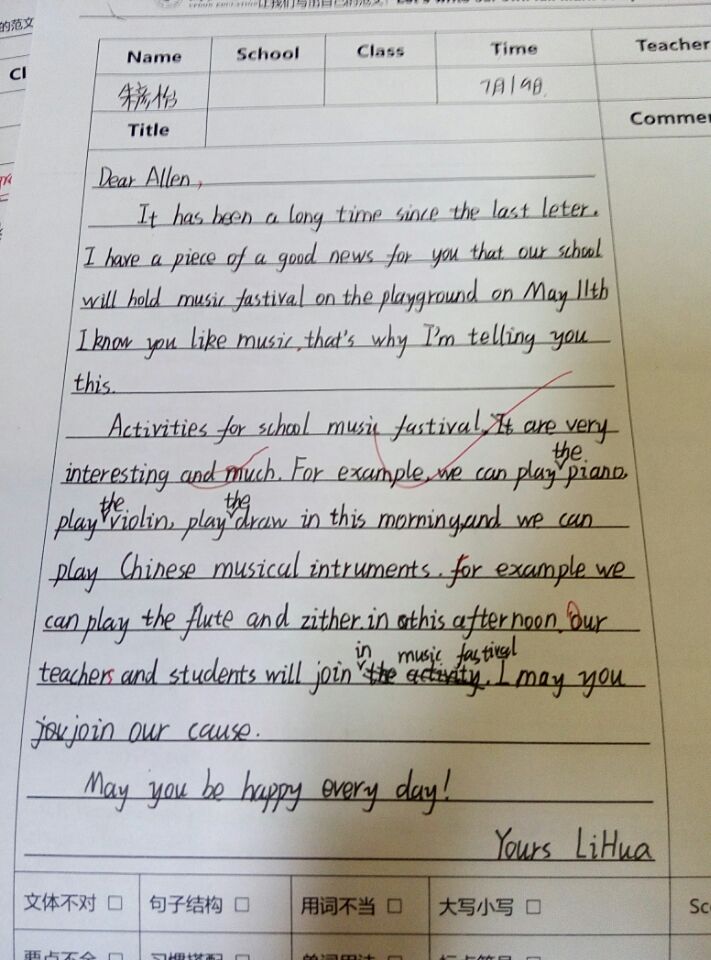 的范文
让我们写出自己的范文
Name School Class Time Teacher
7月19日
Title Commen
Dear Allen,
It has been a long time since the last leter.
I have a piece of a good news for you that our school
will hold music fastival on the playground on May 11th
I know you like music, that's why I'm telling you
this.
Activities for school music fastival, It are very
interesting and much. For example, we can play the piano,
play the violin, play the draw in this morning,and we can
play Chinese musical intruments. for example we
can play the flute and zither.in this afternoon. Our
teachers and students will join in the activity. music fastival I may you
join our cause.
May you be happy every day!
Yours LiHua
文体不对 □ 句子结构 □ 用词不当 □ 大写小写 □ Sc